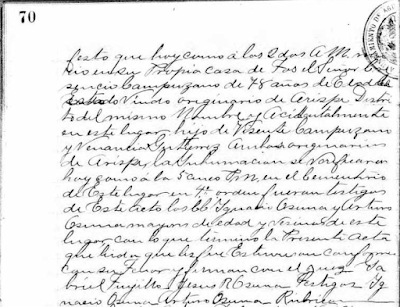 70
festo que hoy como á las 2 dos A.M. 
en su Propia casa de Tos el Señor
sencio Campuzano de 78 años de Edad
Estado Viudo originario de Arispe Distri
to del mismo Nombre y Accidentalmente
en este lugar hijo de Vicente Campuzano
y Venancia Gutierrez Ambos originarios
de Arispe, la Inhumacion se verificara
hoy como á las 5 cinco P.M. en el Cementerio
de Este lugar en 4ª orden fueron testigos
de Este Acto los CC Ignacio Osuna y Arturo
Osuna mayores de edad y vecinos de este
lugar con lo que termino la Presente Acta
que leida que les fue Estuvieron conformes
con su tenor y firman con el Juez Ga
briel Trujillo Jesus R Osuna Testigos Ig
nacio Osuna Arturo Osuna Rubricas